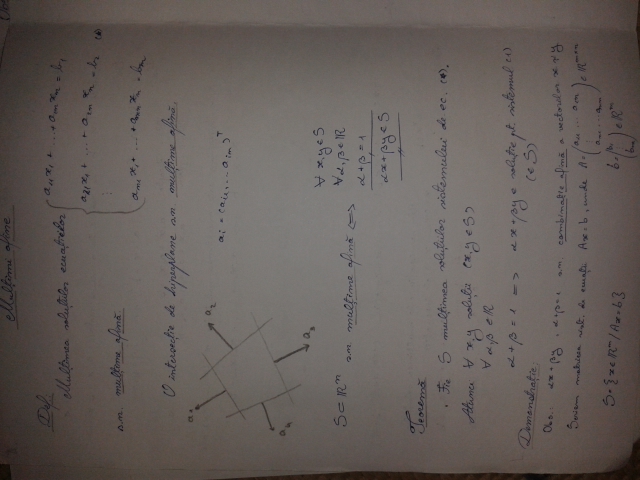 Mulțimi afine
Def.
Mulțimea soluțiilor ecuațiilor { a₁₁x₁ + ... + a₁ₙxₙ = b₁
a₂₁x₁ + ... + a₂ₙxₙ = b₂ (1)
⋮
aₘ₁x₁ + ... + aₘₙxₙ = bₘ
s.n. mulțime afină
O intersecție de hiperplane s.n. mulțime afină.
a₁
a₂
aᵢ = (aᵢ₁, ... aᵢₙ)ᵀ
a₄
a₃
S ⊂ ℝⁿ s.n. mulțime afină ⟺
∀ x, y ∈ S
∀ α, β ∈ ℝ
α + β = 1
αx + βy ∈ S
Teoremă
• Fie S mulțimea soluțiilor sistemului de ec. (1).
Atunci ∀ x, y soluții (x, y ∈ S)
∀ α, β ∈ ℝ
α + β = 1 ⟹ αx + βy e soluție pt. sistemul (1)
(∈ S)
Demonstrație:
Obs.: αx + βy, α+β=1 s.n. combinație afină a vectorilor x și y
Scriem matricea sist. de ecuații Ax = b, unde A = (a₁₁ ... a₁ₙ
aₘ₁ ... aₘₙ) ∈ ℝᵐˣⁿ
S = {x ∈ ℝⁿ / Ax = b}
b = (b₁
⋮
bₘ) ∈ ℝᵐ